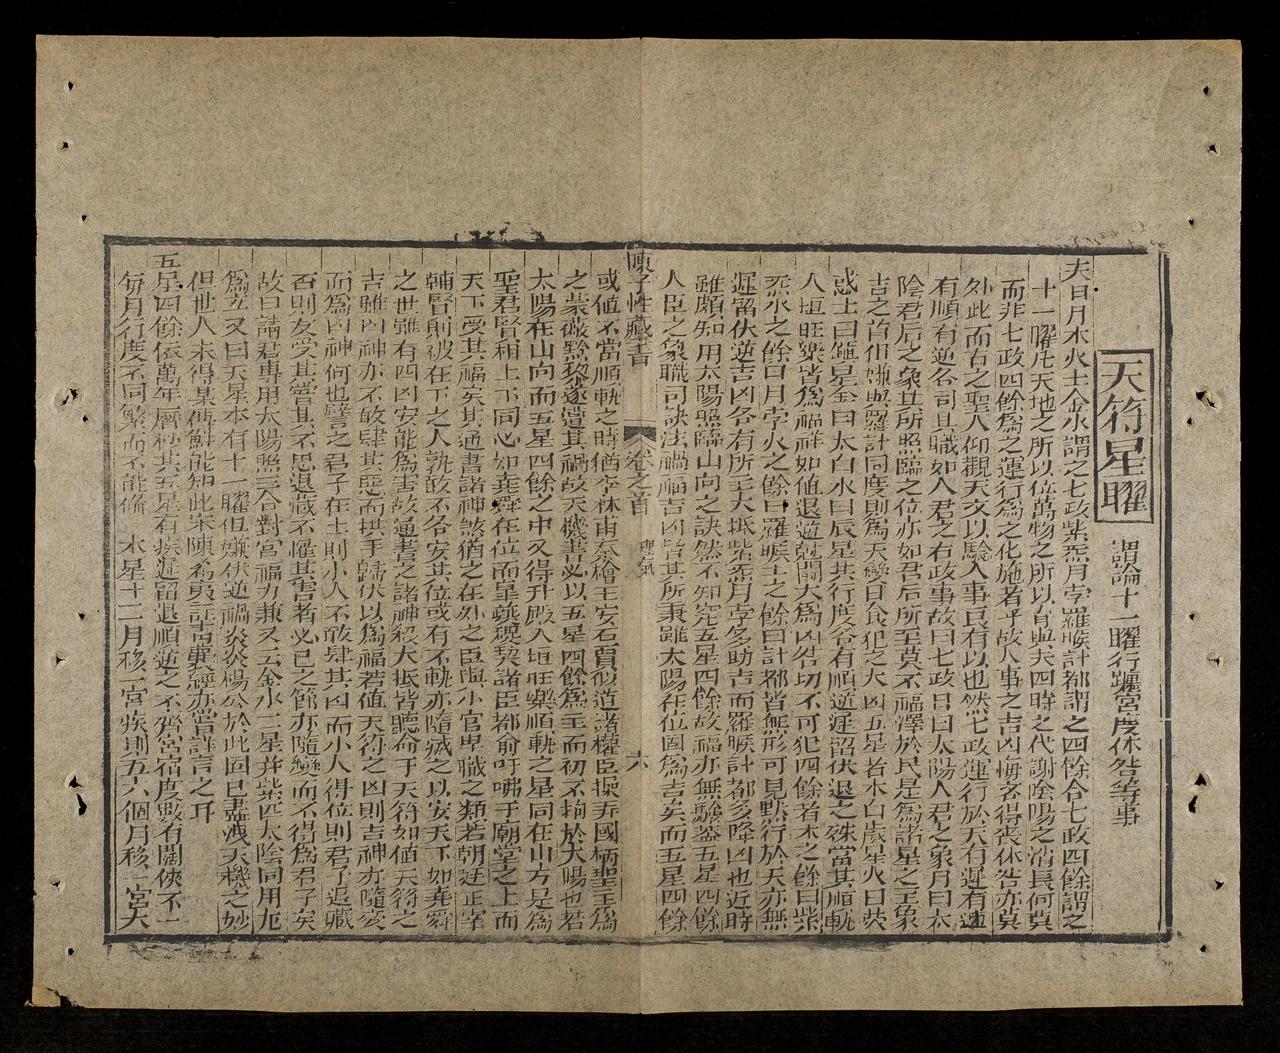 天符星曜　謂論十一曜行躔宮度休咎等事
夫日月木火土金水謂之七政紫炁月孛羅睺計都謂之四餘合七政四餘謂之
十一曜凡天地之所以位萬物之所以育與夫四時之代謝陰陽之消長何莫
而非七政四餘為之運行為之化施者乎故人事之吉凶悔吝得喪休咎亦莫
外此而有之聖人仰觀天文以驗人事良有以也然七政運行於天有遲有速
有順有逆各司其職如人君之有政事故曰七政日曰太陽人君之象月曰太
陰君后之象其所照臨之位亦如君后所至莫不福澤於民是為諸星之主象
吉之首但嫌與羅計同度則為天變日食犯之大凶五星者木曰歲星火曰熒
惑土曰鎮星金曰太白水曰辰星其行度各有順逆遲留伏退之殊當其順軌
入垣旺樂皆為福祥如值退逆就鬪大為凶咎切不可犯四餘者木之餘曰紫
炁水之餘曰月孛火之餘曰羅睺土之餘曰計都皆無形可見默行於天亦無
遲留伏逆吉凶各有所主大抵紫炁月孛多助吉而羅睺計都多降凶也近時
雖頗知用太陽照臨山向之訣然不知究五星四餘故福亦無驗蓋五星四餘
人臣之象職司訣法禍福吉凶皆其所秉雖太陽在位固為吉矣而五星四餘
陳子性藏書　卷之首　理氣　六
或值不當順軌之時猶李林甫秦檜王安石賈似道諸權臣操弄國柄聖主為
之蒙蔽黔黎遂遭其禍故天機書必以五星四餘為主而初不拘於太陽也若
太陽在山向而五星四餘之中又得升殿入垣旺樂順軌之星同在山方是為
聖君賢相上下同心如堯舜在位而皐夔稷契諸臣都俞吁咈于廟堂之上而
天下受其福矣其通書諸神煞猶之在外之臣與小官卑職之類若朝廷正宰
輔賢則彼在下之人孰敢不各安其位或有不軌亦隨滅之以安天下如堯舜
之世雖有四凶安能為害故通書之諸神殺大抵皆聽命于天符如值天符之
吉雖凶神亦不敢肆其惡而拱手歸伏以為福若值天符之凶則吉神亦隨變
而為凶神何也譬之君子在上則小人不敢肆其凶而小人得位則君子退藏
否則反受其嘗其不思退藏不懼其害者必己之節亦隨變而不得為君子矣
故曰請君專用太陽照三合對宮福力兼又云金水二星并紫炁太陰同用尤
為立又曰天星本有十一曜但嫌伏逆禍炎炎楊公於此固已盡洩天機之妙
但世人未得其傳鮮能知此宋陳希夷註青囊經亦嘗詳言之耳
五星四餘依萬年曆秒其五星有疾遲留退順逆之不齊宮宿度數有闊俠不一
每月行度不同繁而不能備　木星十二月移一宮疾則五六個月移一宮大